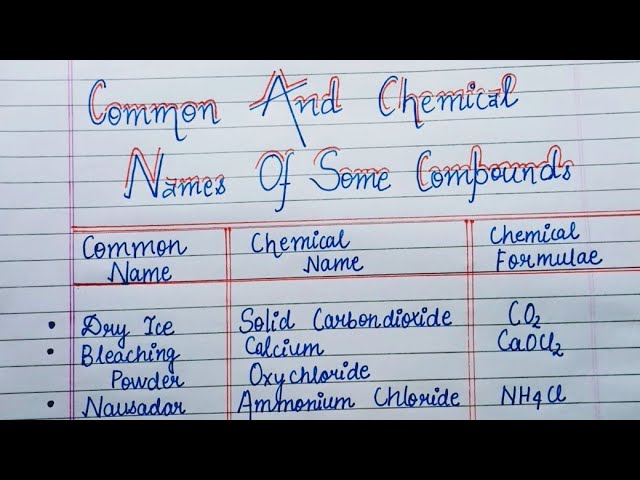 Common And Chemical
Names Of Some Compounds
Common Name Chemical Name Chemical Formulae
• Dry Ice Solid Carbondioxide CO₂
• Bleaching Powder Calcium Oxychloride CaOCl₂
• Nausadar Ammonium Chloride NH₄Cl